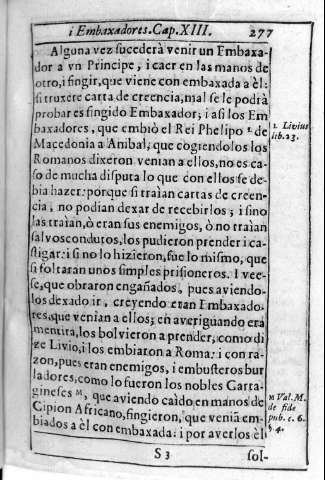 i Embaxadores. Cap. XIII. 277
Alguna vez sucederà venir un Embaxa-
dor a vn Principe, i caer en las manos de
otro, i fingir, que viene con embaxada a èl:
si truxere carta de creencia, mal se le podrà
probar es fingido Embaxador; i asi los Em
baxadores, que embiò el Rei Phelipo L de
Macedonia a Anibal, que cogiendolos los
Romanos dixeron venian a ellos, no es ca-
so de mucha disputa lo que con ellos se de-
bia hazer: porque si traìan cartas de creen-
cia, no podian dexar de recebirlos; i sino
las traìan, ò eran sus enemigos, ò no traìan
salvosconduros, los pudieron prender i cas-
tigar: i si no lo hizieron, fue lo mismo, que
si soltaran unos simples prisioneros. I vee-
se, que obraron engañados, pues aviendo-
los dexado ir, creyendo eran Embaxado-
res, que venian a ellos; en averiguando era
mentira, los bolvieron a prender, como di-
ze Livio, i los embiaron a Roma: i con ra-
zon, pues eran enemigos, i embusteros bur
ladores, como lo fueron los nobles Carta-
gineses M, que aviendo caìdo en manos de
Cipion Africano, fingieron, que venian em-
biados a èl con embaxada: i por averlos èl
S 3 sol-
L Livius
lib. 23.
M Val. M.
de fide
pub. c. 6.
§. 4.